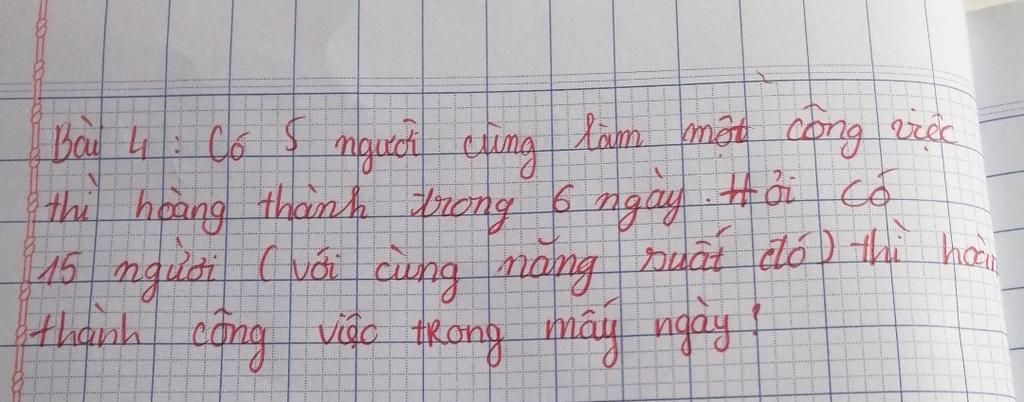 Bài 4 : Có 5 người cùng làm một công việc
thì hoàng thành trong 6 ngày. Hỏi có
15 người (với cùng năng suất đó) thì hoàn
thành công việc trong mấy ngày?